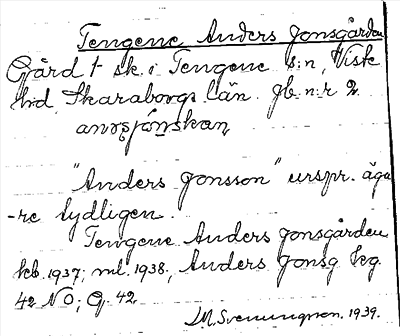 Tengene Anders Jonsgården
Gård 1 sk. i Tengene s:n, Viste
hd, Skaraborgs län. Jb. n:r 2.
"Anders Jonsson" urspr. äga
-re tydligen.
Tengene Anders Jonsgården
kb. 1937; ml. 1938, Anders Jonsg kg.
42 NO; G. 42
M. Svenungsson. 1939.